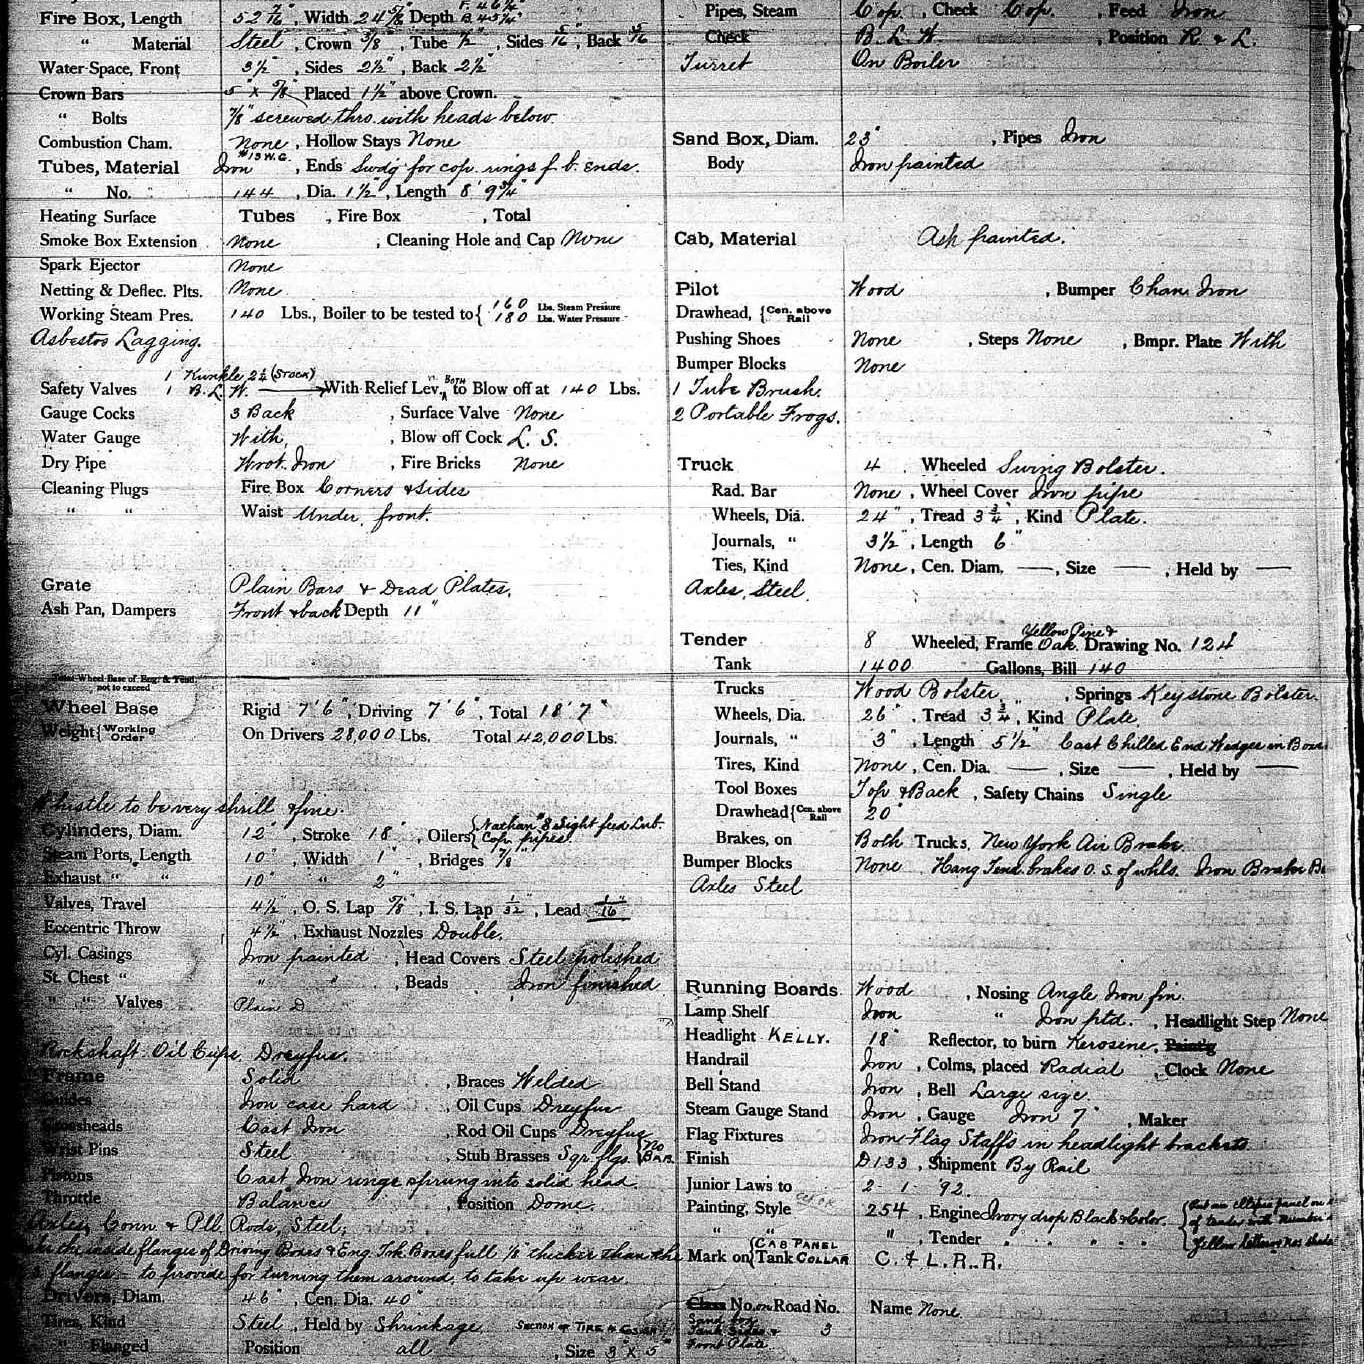 Fire Box, Length 52 7/16", Width 24 5/8" Depth F. 46 1/4" B. 43 1/4"
" Material Steel, Crown 3/8, Tube 1/2", Sides 5/16", Back 5/16
Water Space, Front 3 1/2", Sides 2 1/2", Back 2 1/2"
Crown Bars 5" x 5/8" Placed 1 1/2" above Crown.
" Bolts 7/8" screwed thro. with heads below.
Combustion Cham. None, Hollow Stays None
Tubes, Material Iron #13 W.G., Ends Swd'g for cop. rings f. b. ends.
" No. 144, Dia. 1 1/2", Length 8' 9 3/4"
Heating Surface Tubes , Fire Box , Total
Smoke Box Extension None , Cleaning Hole and Cap None
Spark Ejector None
Netting & Deflec. Plts. None
Working Steam Pres. 140 Lbs., Boiler to be tested to { 160 Lbs. Steam Pressure 180 Lbs. Water Pressure
Asbestos Lagging.
1 Kunkle 2 1/4 (STOCK)
Safety Valves 1 B. L. W. With Relief Lev. BOTH to Blow off at 140 Lbs.
Gauge Cocks 3 Back , Surface Valve None
Water Gauge With , Blow off Cock L. S.
Dry Pipe Wrot. Iron , Fire Bricks None
Cleaning Plugs Fire Box Corners & Sides
" " Waist Under front.
Grate Plain Bars & Dead Plates.
Ash Pan, Dampers Front & back Depth 11"
Total Wheel Base of Eng. & Tend. not to exceed
Wheel Base Rigid 7' 6", Driving 7' 6", Total 18' 7"
Weight { Working Order On Drivers 28,000 Lbs. Total 42,000 Lbs.
Whistle to be very shrill & fine.
Cylinders, Diam. 12", Stroke 18", Oilers { Nathan #8 Sight feed Lub. Cop. pipes.
Steam Ports, Length 10", Width 1", Bridges 7/8"
Exhaust " " 10" " 2"
Valves, Travel 4 1/2", O. S. Lap 5/8", I. S. Lap 1/32", Lead 1/16"
Eccentric Throw 4 1/2", Exhaust Nozzles Double.
Cyl. Casings Iron painted, Head Covers Steel polished
St. Chest " " " , Beads Iron finished
" " Valves Plain D
Rockshaft Oil Cups Dreyfus.
Frame Solid , Braces Welded
Guides Iron case hard , Oil Cups Dreyfus
Crossheads Cast Iron , Rod Oil Cups Dreyfus
Wrist Pins Steel , Stub Brasses Sqr. flgs. { No BAB.
Pistons Cast Iron rings sprung into solid head.
Throttle Balance , Position Dome.
Axles, Conn & Pll. Rods, Steel.
the inside flanges of Driving Boxes & Eng. Trk Boxes full 1/8" thicker than the
flanges to provide for turning them around, to take up wear.
Drivers, Diam. 46", Cen. Dia. 40"
Tires, Kind Steel, Held by Shrinkage SECTION OF TIRE
" Flanged Position all , Size 3 x 5"
Pipes, Steam Cop. , Check Cop. , Feed Iron
Check B. L. W. , Position R & L.
Turret On Boiler
Sand Box, Diam. 23" , Pipes Iron
Body Iron painted
Cab, Material Ash painted.
Pilot Wood , Bumper Chan. Iron
Drawhead, { Cen. above Rail
Pushing Shoes None , Steps None , Bmpr. Plate With
Bumper Blocks None
1 Tube Brush.
2 Portable Frogs.
Truck 4 Wheeled Swing Bolster.
Rad. Bar None, Wheel Cover Iron pipe
Wheels, Dia. 24", Tread 3 3/4", Kind Plate.
Journals, " 3 1/2", Length 6"
Ties, Kind None, Cen. Diam. — , Size — , Held by —
Axles, Steel.
Tender 8 Wheeled, Frame Yellow Pine & Oak. Drawing No. 124
Tank 1400 Gallons, Bill 140
Trucks Wood Bolster , Springs Keystone Bolster.
Wheels, Dia. 26", Tread 3 3/4", Kind Plate.
Journals, " 3", Length 5 1/2" Cast Chilled End Wedges in Boxes
Tires, Kind None, Cen. Dia. — , Size — , Held by —
Tool Boxes Top & Back , Safety Chains Single
Drawhead { Cen. above Rail 20"
Brakes, on Both Trucks, New York Air Brake.
Bumper Blocks None Hang Tend. brakes O. S. of whls. Iron Brake
Axles Steel
Running Boards Wood , Nosing Angle Iron fin.
Lamp Shelf Iron " Iron ptd. , Headlight Step None
Headlight KELLY. 18" Reflector, to burn Kerosene, Paint'g
Handrail Iron, Colms, placed Radial , Clock None
Bell Stand Iron, Bell Large size.
Steam Gauge Stand Iron, Gauge Iron 7" , Maker
Flag Fixtures Iron Flag Staffs in headlight brackets
Finish D133, Shipment By Rail
Junior Laws to 2 - 1 - 92.
Painting, Style 254, Engine Ivory drop Black & Color. { Put an ellipse panel on of tender with Number Yellow letters no shade
" " " , Tender " " " "
Mark on { CAB PANEL Tank COLLAR C. & L. R. R.
Class No. on Road No. Name None
Sand box
Tank Sides & 3
Front Plate